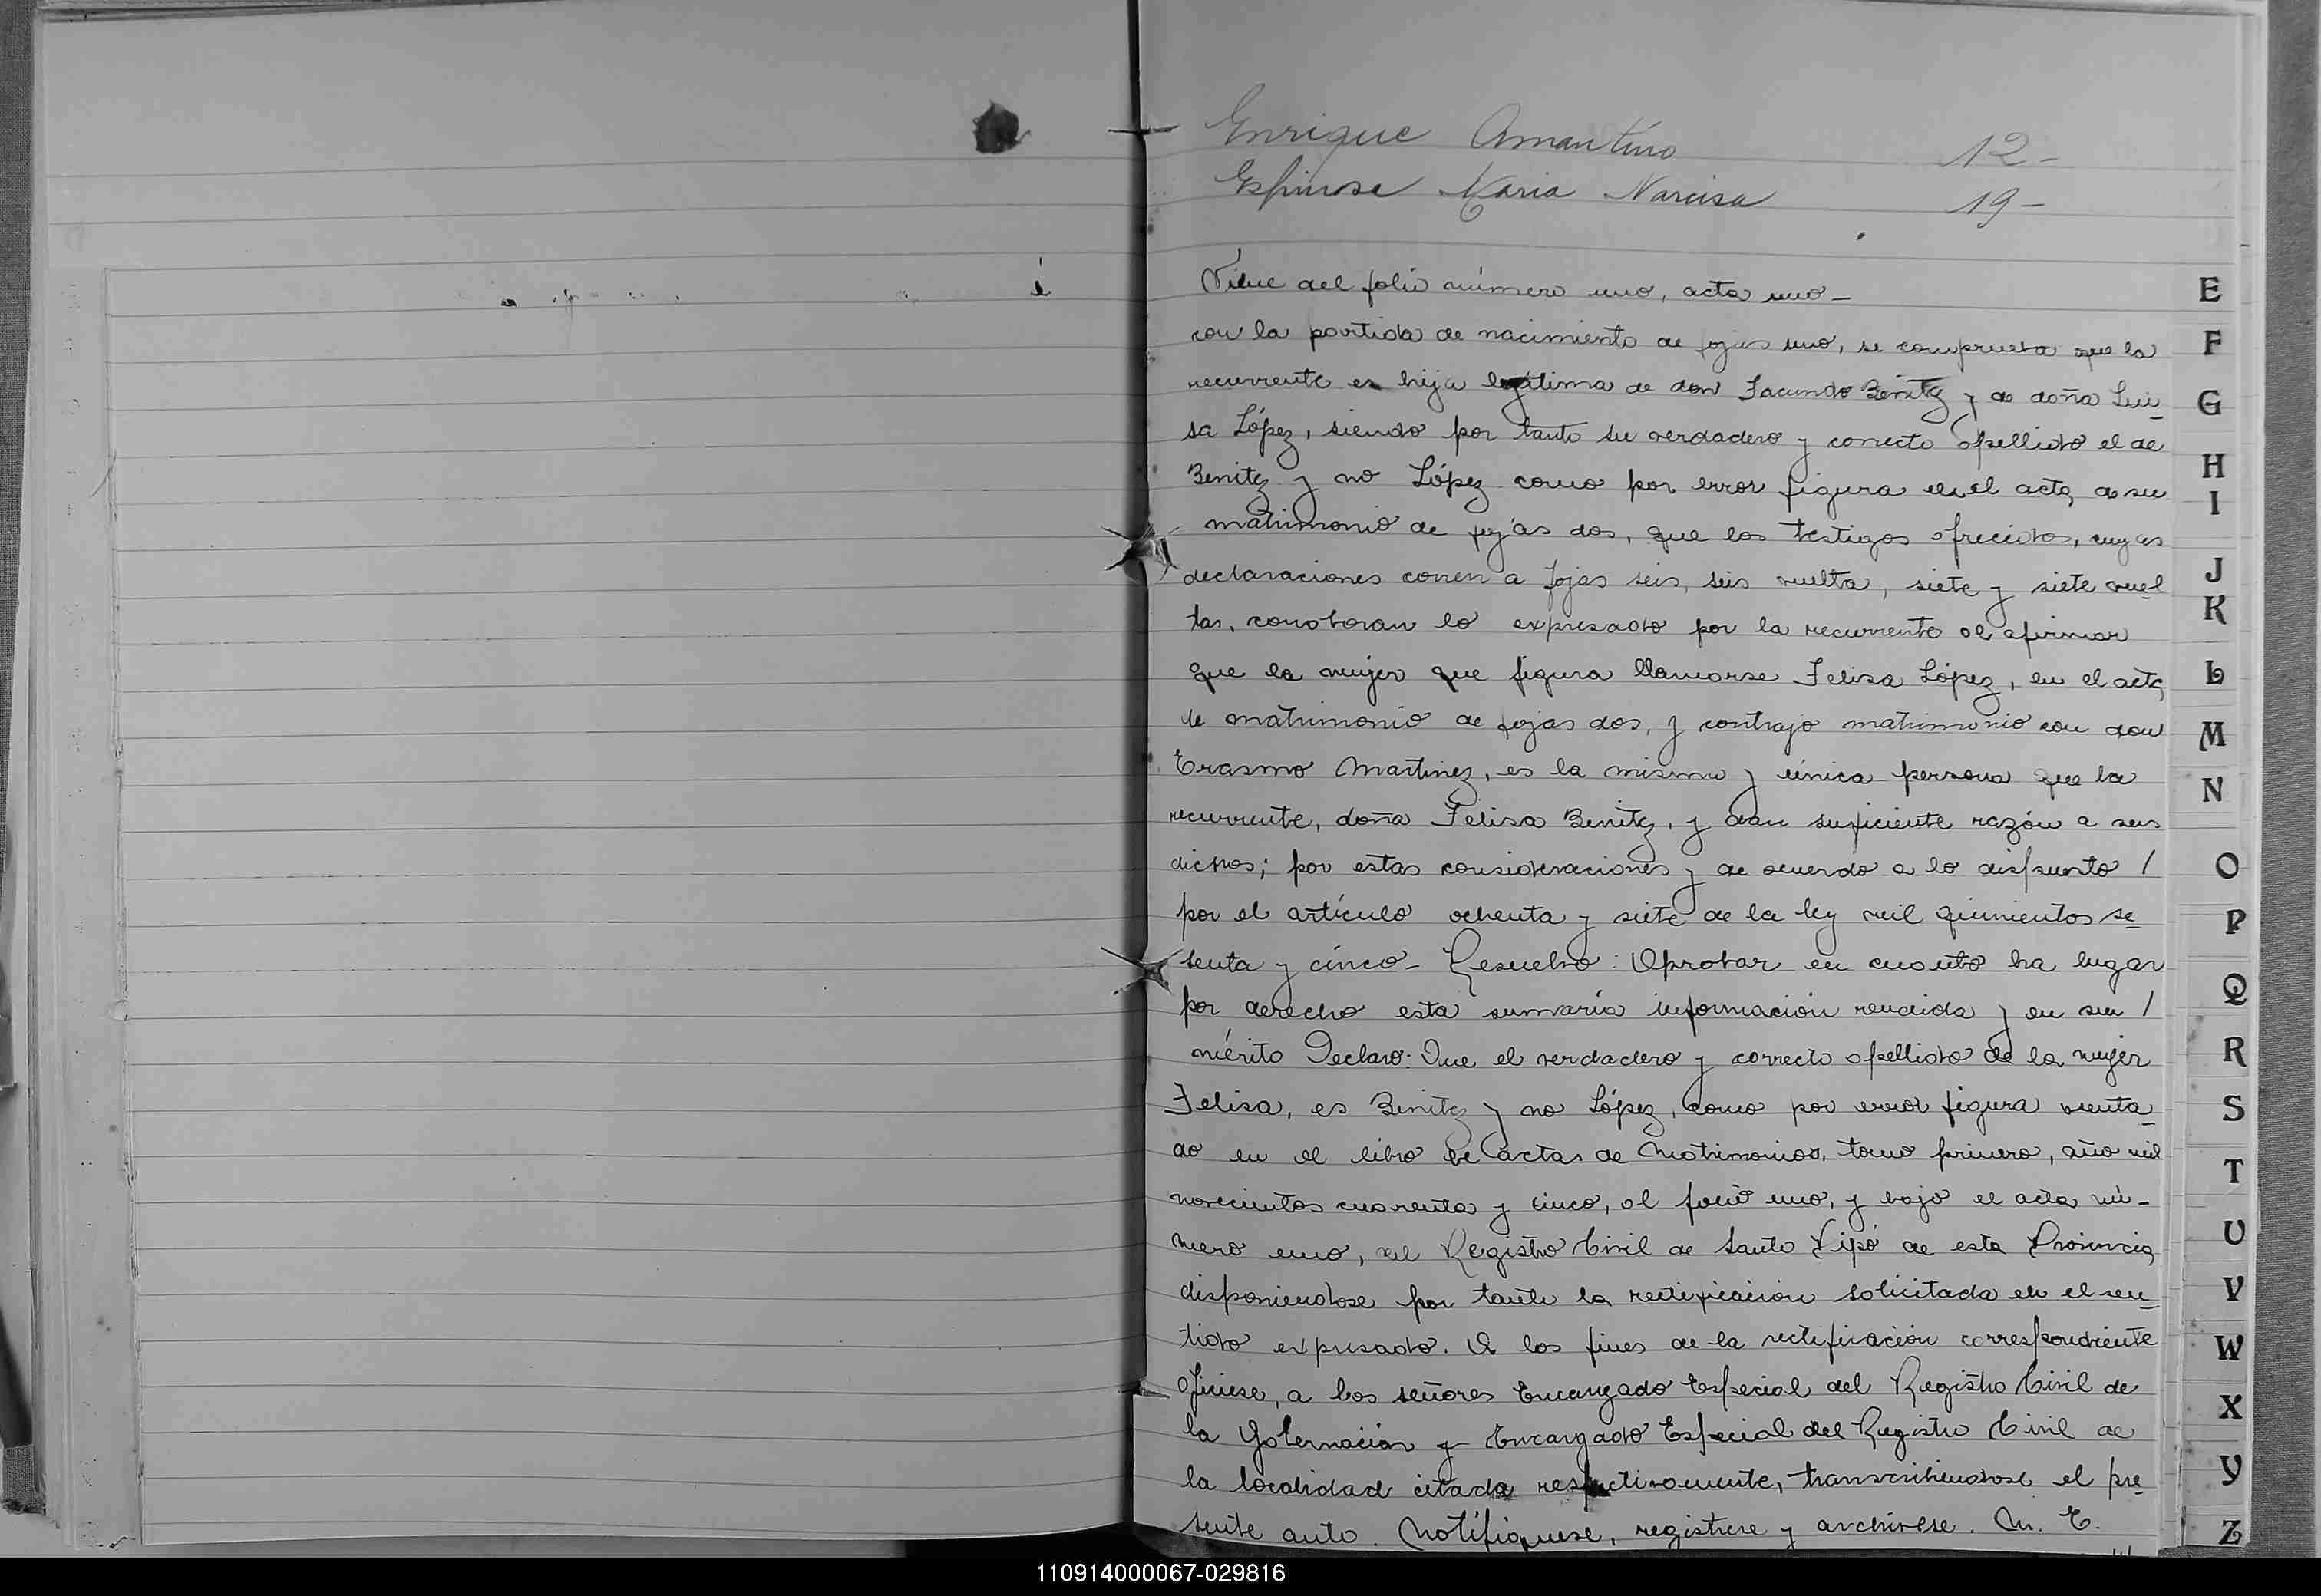 Enrique Amantino 12-
Espinosa Maria Narcisa 19-
Viene del folio número uno, acta uno-
con la partida de nacimiento de fojas uno, se comprueba que la
recurrente es hija legítima de don Facundo Benitez y de doña Lui-
sa López, siendo por tanto su verdadero y correcto apellido el de
Benitez y no López como por error figura en el acta de su
matrimonio de fojas dos, que los testigos ofrecidos, cuyas
declaraciones corren a fojas seis, seis vuelta, siete y siete vuel-
tas, corroboran lo expresado por la recurrente al afirmar
que la mujer que figura llamarse Felisa López, en el acta
de matrimonio de fojas dos, y contrajo matrimonio con don
Erasmo Martinez, es la misma y única persona que la
recurrente, doña Felisa Benitez, y dan suficiente razón a sus
dichos; por estas consideraciones y de acuerdo a lo dispuesto /
por el artículo ochenta y siete de la ley mil quinientos se-
senta y cinco- Resuelvo: Aprobar en cuanto ha lugar
por derecho esta sumaria información rendida y en su /
mérito Declaro: Que el verdadero y correcto apellido de la mujer
Felisa, es Benitez y no López, como por error figura senta-
do en el libro de actas de Matrimonios, tomo primero, año mil
novecientos cuarenta y cinco, al folio uno, y bajo el acta nú-
mero uno, del Registro Civil de Santo Pipó de esta Provincia,
disponiendose por tanto la rectificación solicitada en el sen-
tido expresado. A los fines de la rectificación correspondiente
ofíciese, a los señores Encargado Especial del Registro Civil de
la Gobernación y Encargado Especial del Registro Civil de
la localidad citada respectivamente, transcribiendose el pre-
sente auto. Notifíquese, registrese y archivese. M. E.
E
F
G
H
I
J
K
L
M
N
O
P
Q
R
S
T
U
V
W
X
Y
Z
110914000067-029816